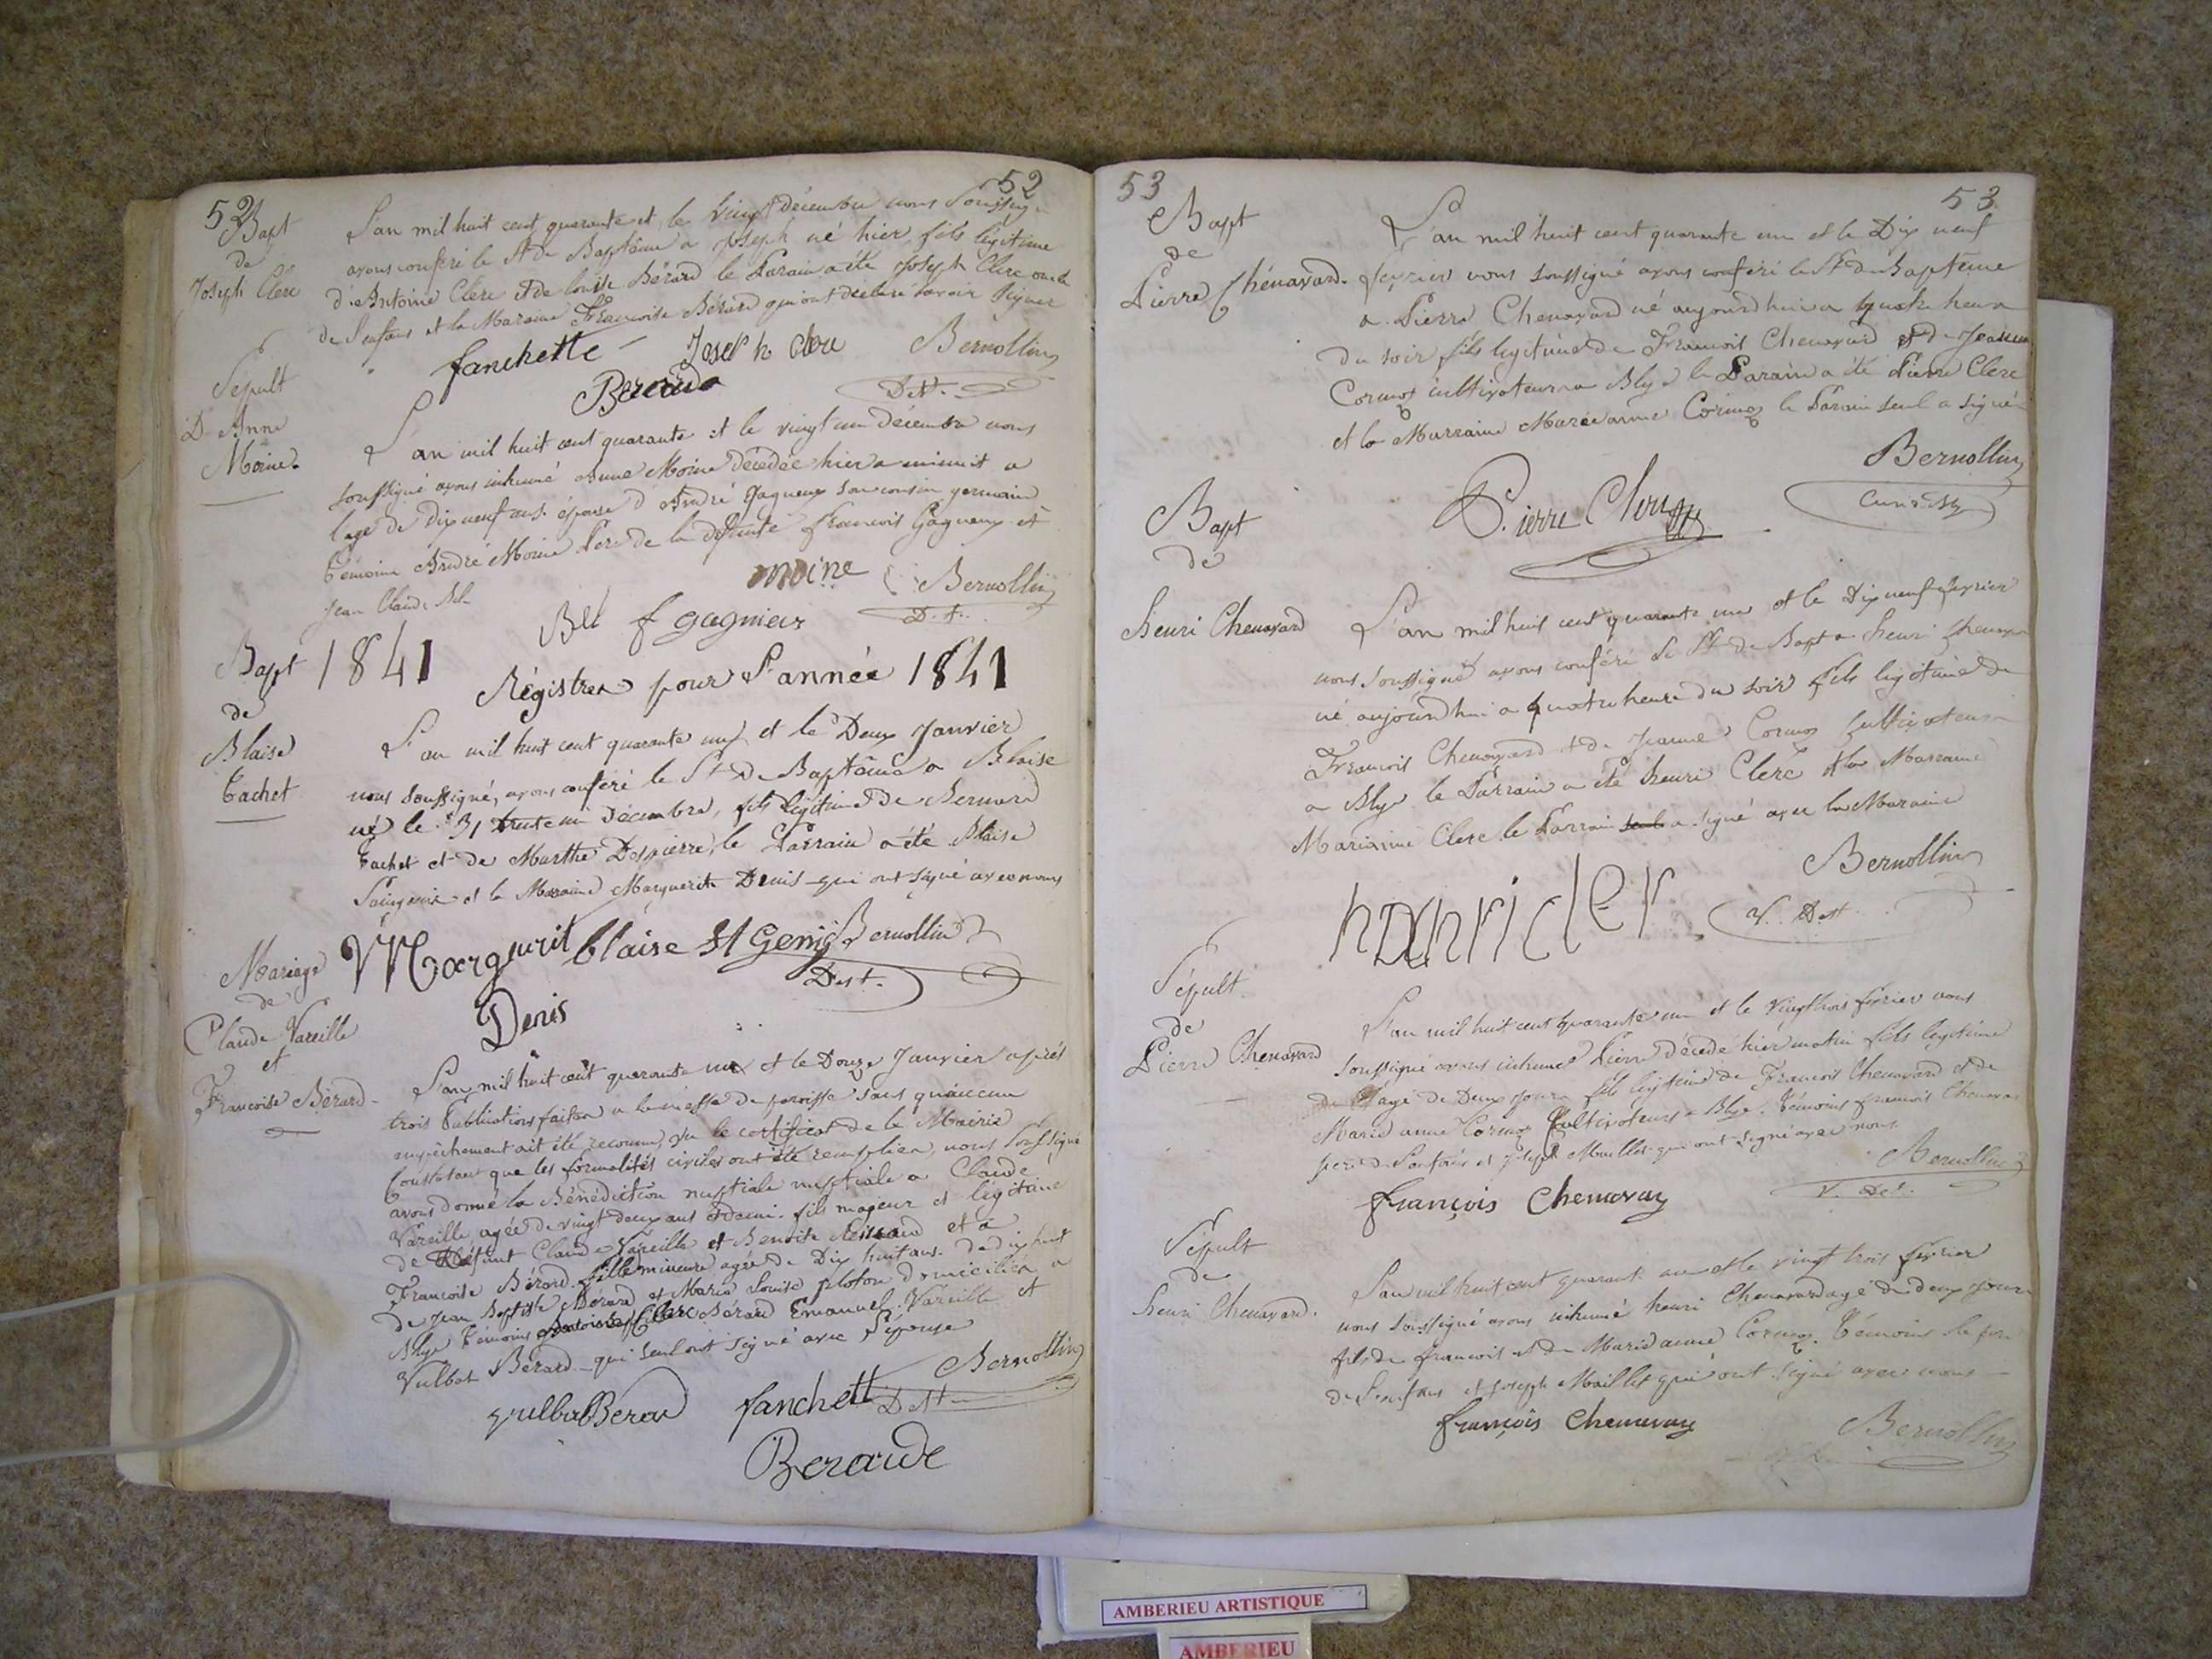 52
52
Bapt
de
Joseph Clerc
L'an mil huit cent quarante et le vingt décembre nous soussigné
avons conféré le St de Baptême a Joseph né hier, fils légitime
d'Antoine Clerc et de louise Bérard le Parain a été Joseph Clerc oncle
de l'enfant et la Maraine Françoise Bérard qui ont déclaré savoir signer
fanchette Joseph clerc Bernollin
Berarde Dest.
Sépult
D Anne
Moine.
L'an mil huit cent quarante et le vingt un décembre nous
soussigné avons inhumé Anne Moine décédée hier a minuit a
l'age de dix neuf ans épouse d'André Gagneux son cousin germain
témoins André Moine Pere de la défunte francois Gagneux et
Jean Claude
moine Bernollin
f gagnieux D.
1841
Régistre pour l'année 1841
Bapt
de
Blaise
Tachet
L'an mil huit cent quarante un et le Deux Janvier
nous soussigné, avons conféré le St de Baptême a Blaise
né le 31 trente un Décembre, fils légitime de Bernard
Tachet et de Marthe Despierre, le Parrain a été Blaise
et la Maraine Marguerite Denis qui ont signé avec nous
Margurit blaise St Genis Bernollin
Denis Dest.
Mariage
de
Claude Vareille
et
Françoise Bérard.
L'an mil huit cent quarante un et le Douze Janvier après
trois Publications faites a la messe de paroisse sans qu'aucun
empêchement ait été reconnu, vu le certificat de la Mairie
Constatant que les formalités civiles ont été remplies, nous soussigné
avons donné la Bénédiction nuptiale nuptiale a Claude
Vareille agée de vingt deux ans et demi fils majeur et légitime
de Défunt Claude Vareille et Benoite et a
Françoise Bérard fille mineure agée de Dix huit ans de dix huit
de Jean Baptiste Bérard et Marie Louise ploton domiciliés a
Blye témoins Antoine Clerc Bérard Emanuel Vareille et
Vulbat Bérard qui seul ont signé avec l'épouse
vulba Berard fanchette Bernollin
Berarde Dest
53
53
Bapt
de
Pierre Chénavard.
L'an mil huit cent quarante un et le Dix neuf
fevrier nous soussigné avons conféré le St de Baptême
a Pierre Chenavard né aujourd'hui a quatre heure
du soir fils legitime de Francois Chenavard et de Jeanne
Cormoz cultivateurs a Blye le Parain a été Pierre Clerc
et la Marraine Marieanne Cormoz le Parain seul a signé
Bernollin
Pierre Clerc
Bapt
de
henri Chenavard
L'an mil huit cent quarante un et le Dix neuf fevrier
nous soussigné avons conféré le St de Bapt a henri
né aujourd'hui a quatre heure du soir fils legitime de
Francois Chenavard et de Jeanne Cormoz Cultivateurs
a Blye le Parrain a été henri Clerc et la Marraine
Marianne Clerc le Parrain seul a signé avec la Maraine
Bernollin
V. Dest
Sépult
de
Pierre Chenavard
L'an mil huit cent quarante un et le vingt trois fevrier nous
soussigné avons inhumé Pierre décédé hier matin fils legitime
agé de Deux jours fils legitime de Francois Chenavard et de
Marie anne Cormoz Cultivateurs a Blye. témoins francois Chenavar
pere de l'enfant et Joseph Maillet qui ont signé avec nous
Bernollin
françois Chenavar V. Dest.
Sépult
de
henri Chenavard.
L'an mil huit cent quarante un et le vingt trois fevrier
nous soussigné avons inhumé henri Chenavard agé de deux jours
fils de francois et de Marie anne Cormoz. témoins le pere
de l'enfant et joseph Maillet qui ont signé avec nous
françois chenavar Bernollin
AMBERIEU ARTISTIQUE
AMBERIEU